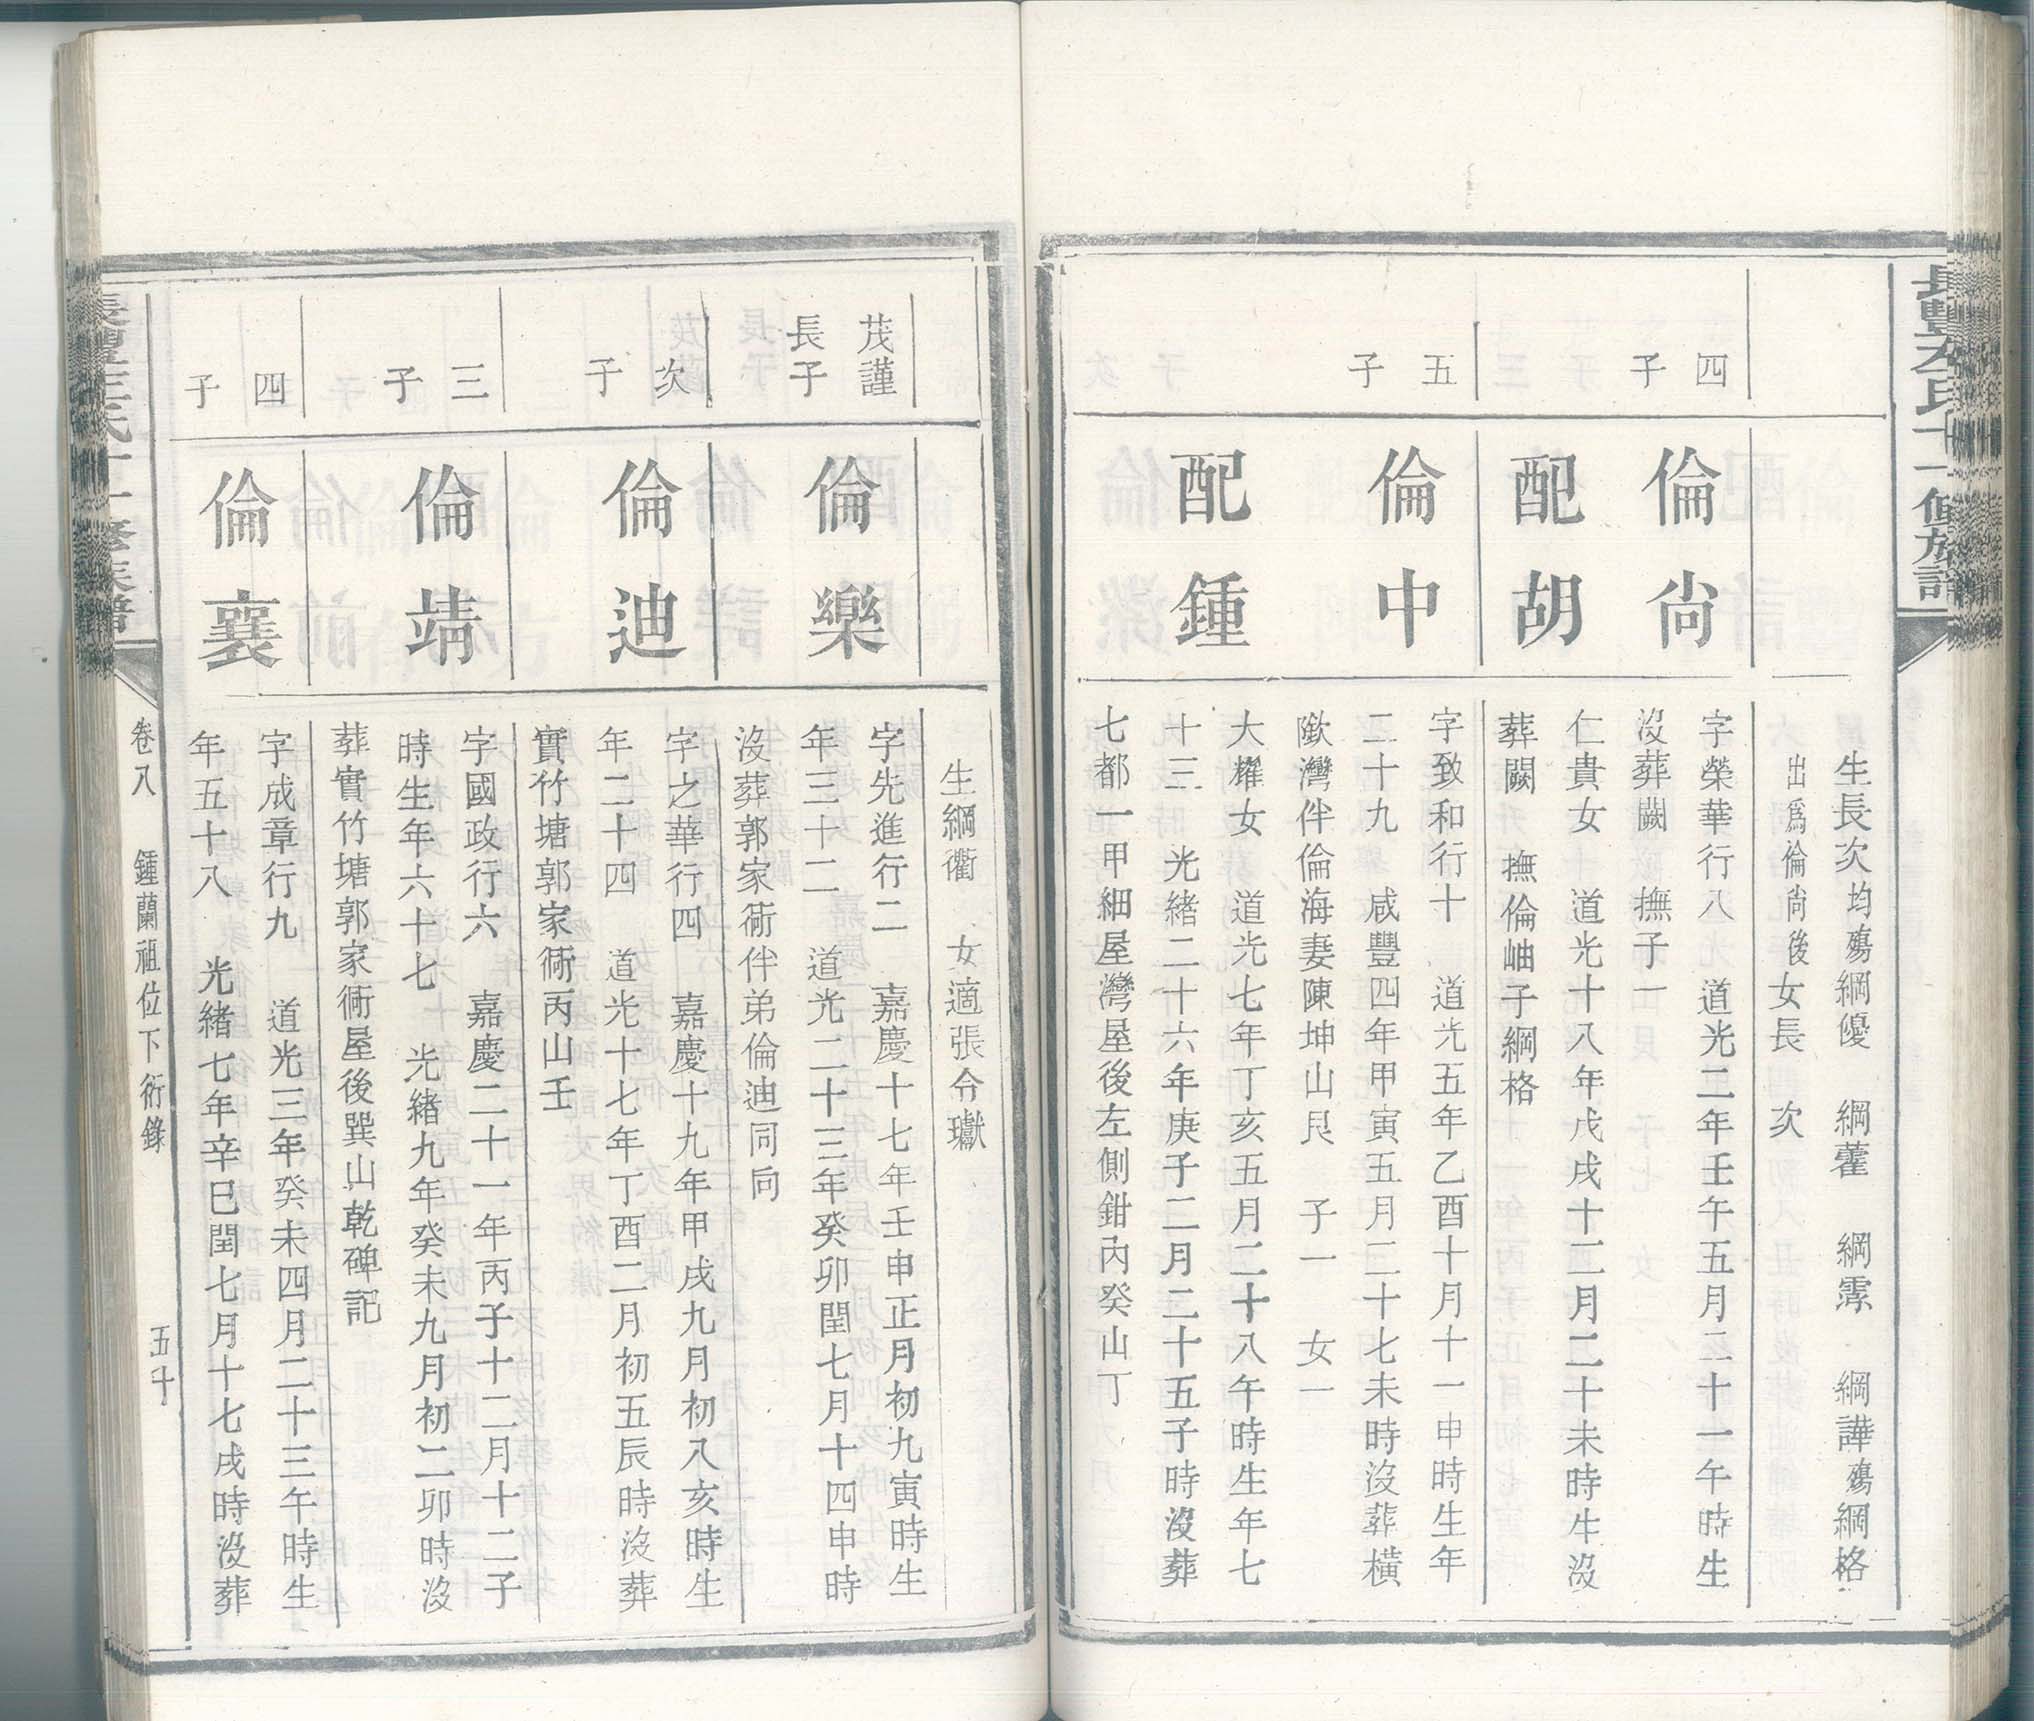 生長次均殤綱優 綱藿 綱霖 綱譁殤綱格
出爲倫尙後女長 次
四子
倫尙
字榮華行八 道光二年壬午五月二十一午時生
沒葬闕 撫子一
配胡
仁貴女 道光十八年戊戌十二月二十未時生沒
葬闕 撫倫岫子綱格
五子
倫中
字致和行十 道光五年乙酉十月十一申時生年
二十九 咸豐四年甲寅五月二十七未時沒葬橫
歐灣伴倫海妻陳坤山艮 子一 女一
配鍾
大耀女 道光七年丁亥五月二十八午時生年七
十三 光緒二十六年庚子二月二十五子時沒葬
七都一甲細屋灣屋後左側鉗內癸山丁
生綱衢 女適張令瓛
茂謹長子
倫樂
字先進行二 嘉慶十七年壬申正月初九寅時生
年三十二 道光二十三年癸卯閏七月十四申時
沒葬郭家衕伴弟倫迪同向
次子
倫迪
字之華行四 嘉慶十九年甲戌九月初八亥時生
年二十四 道光十七年丁酉二月初五辰時沒葬
實竹塘郭家衕丙山壬
三子
倫靖
字國政行六 嘉慶二十一年丙子十二月十二子
時生年六十七 光緒九年癸未九月初二卯時沒
葬實竹塘郭家衕屋後巽山乾碑記
四子
倫襄
字成章行九 道光三年癸未四月二十三午時生
年五十八 光緒七年辛巳閏七月十七戌時沒葬
卷八 鍾蘭祖位下衍錄 五十